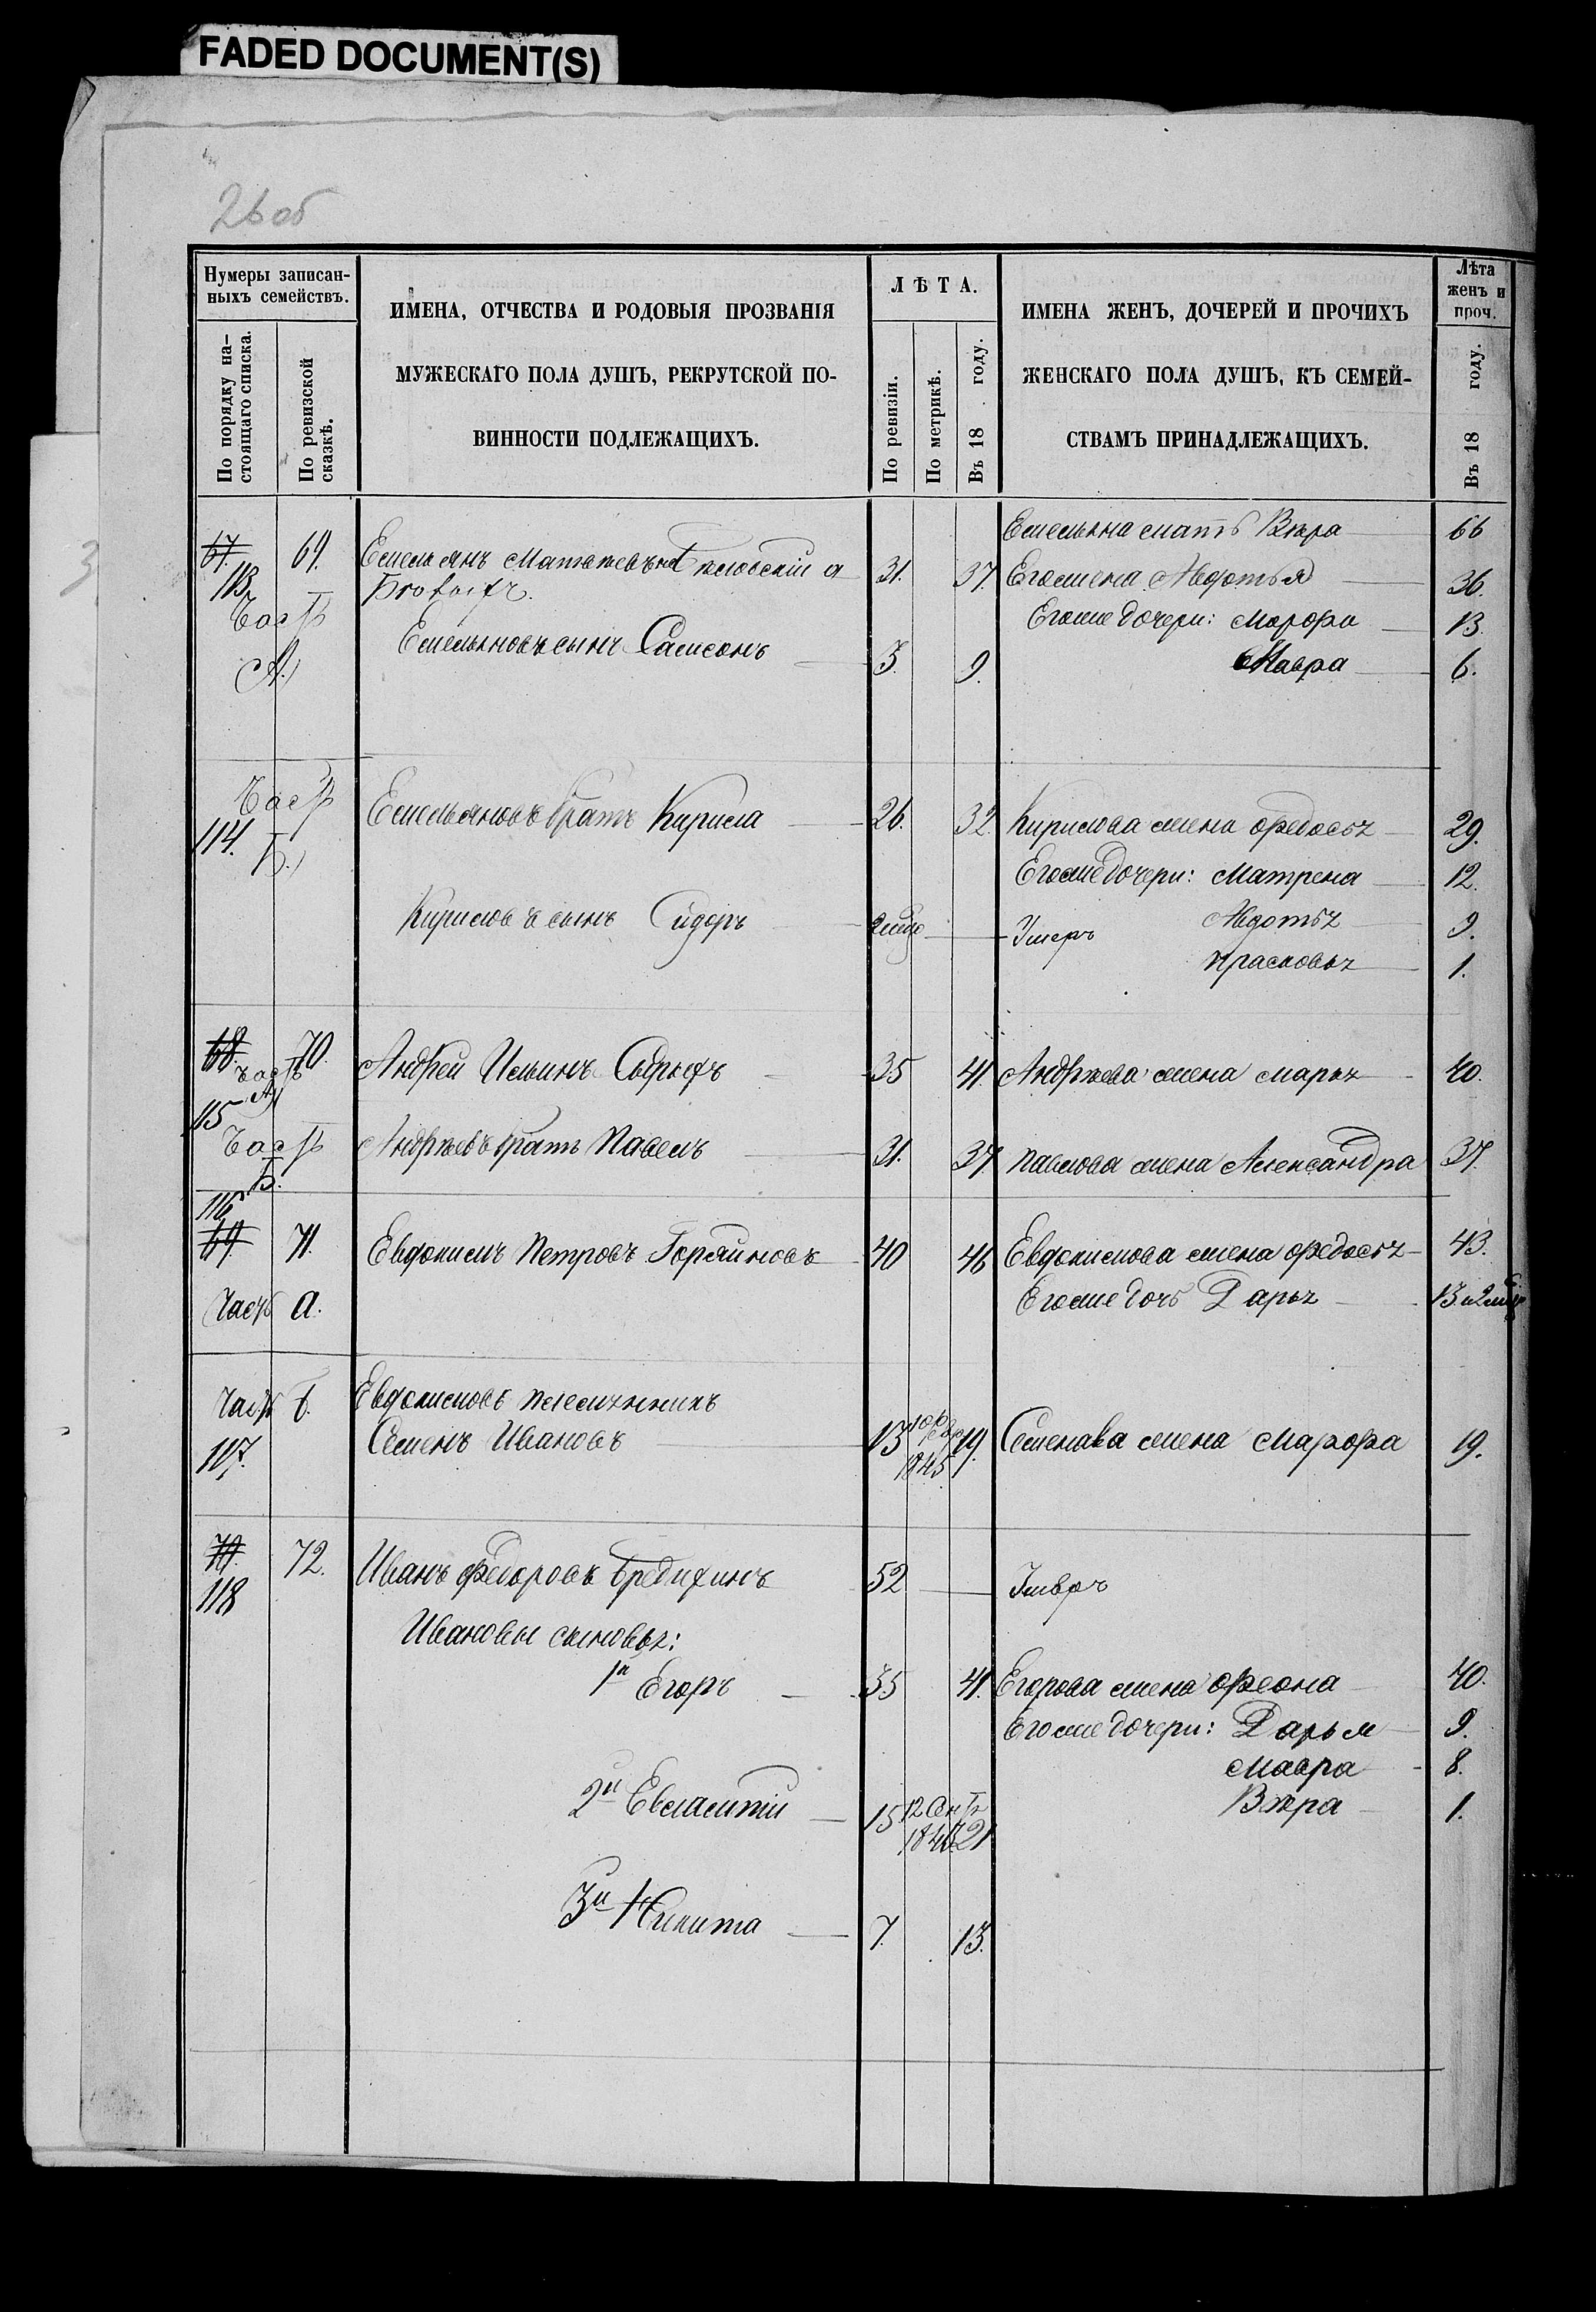 FADED DOCUMENT(S)
26 об
Нумеры записан-
ныхъ семействъ.
По порядку на-
стоящаго списка.
По ревизской
сказкѣ.
ИМЕНА, ОТЧЕСТВА И РОДОВЫЯ ПРОЗВАНІЯ
МУЖЕСКАГО ПОЛА ДУШЪ, РЕКРУТСКОЙ ПО-
ВИННОСТИ ПОДЛЕЖАЩИХЪ.
ЛѢТА.
По ревизіи.
По метрикѣ.
Въ 18 году.
ИМЕНА ЖЕНЪ, ДОЧЕРЕЙ И ПРОЧИХЪ
ЖЕНСКАГО ПОЛА ДУШЪ, КЪ СЕМЕЙ-
СТВАМЪ ПРИНАДЛЕЖАЩИХЪ.
Лѣта
женъ и
проч.
Въ 18 году.
Емельяна мать Вѣра 66
67. 69. Емельянъ Матвѣевъ 31. 37. Его жена Авдотья 36.
113
Часть Его же дочери: Марфа 13.
А.) Емельяновъ сынъ Самсонъ 3. 9. Мавра 6.
Часть Емельяновъ братъ Кирила 26. 32. Кирилова жена Федосья 29.
114. Б.) Его же дочери: Матрена 12.
Кириловъ сынъ Сидоръ Умеръ Авдотья 9.
Прасковья 1.
68. 70. Андрей Ильинъ 35 41. Андреева жена Марья 40.
Часть А)
115
Часть Андреевъ братъ Павелъ 31. 37. Павлова жена Александра 37.
Б.
116
69. 71. Евдокимъ Петровъ Горяиновъ 40 46 Евдокимова жена Федосья 43.
Часть а. Его же дочь Дарья 13
Часть б. Евдокимовъ племянникъ
117. Семенъ Ивановъ 13 1845 19. Семенова жена Марфа 19.
70. 72. Иванъ Федоровъ Бредихинъ 52 Умеръ
118
Ивановы сыновья:
1й Егоръ 35 41. Егорова жена Феона 40.
Его же дочери: Дарья 9.
Мавра 8.
2й Евлампий 15 12 Сент 21 Вѣра 1.
3й Никита 7. 13.